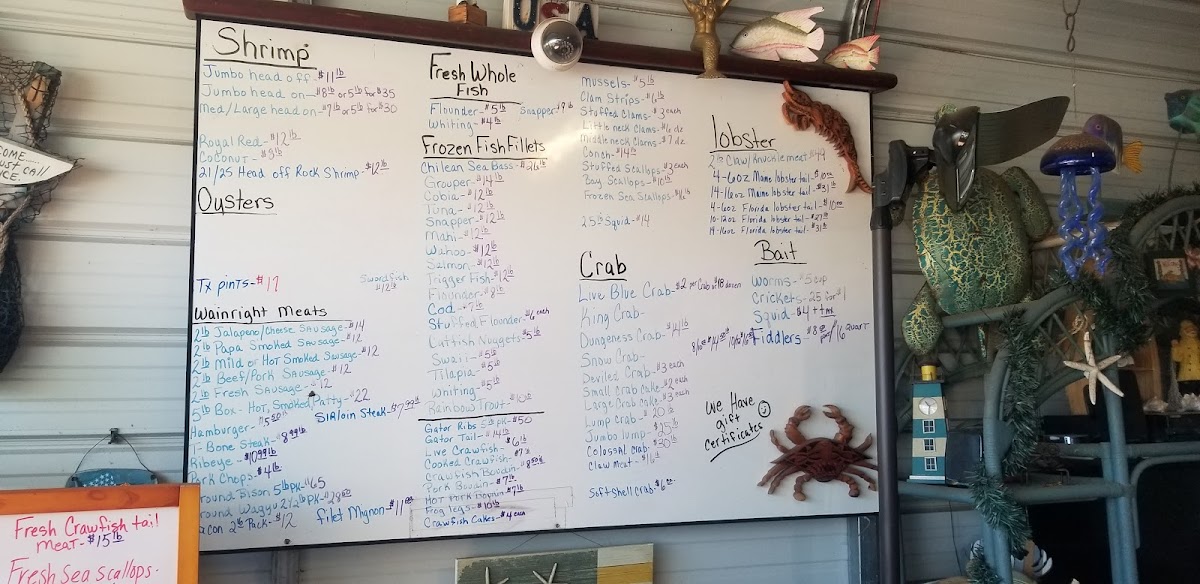 USA
Shrimp
Jumbo head off - $11 lb
Jumbo head on - $8 lb or 5 lb for $35
Med/Large head on - $7 lb or 5 lb for $30
Royal Red - $12 lb
Coconut - $9 lb
21/25 Head off Rock Shrimp - $12 lb
Oysters
TX pints - $17
Swordfish
$12 lb
Wainright Meats
2 lb Jalapeno/Cheese Sausage - $14
2 lb Papa Smoked Sausage - $12
2 lb Mild or Hot Smoked Sausage - $12
2 lb Beef/Pork Sausage - $12
2 lb Fresh Sausage - $12
5 lb Box - Hot, Smoked Patty - $22
Hamburger - $5.50 lb
Sirloin Steak - $7.99 lb
T-Bone Steak - $8.99 lb
Ribeye - $10.99 lb
Pork Chops - $4 lb
round Bison 5 lb PK - $65
round Wagyu 2 1/2 lb PK - $28
acon 2 lb Pack - $12
Filet Mignon - $11
Fresh Whole
Fish
Flounder - $5 lb
Snapper - $9 lb
Whiting - $4 lb
Frozen Fish Fillets
Chilean Sea Bass - $26 lb
Grouper - $14 lb
Cobia - $12 lb
Tuna - $12 lb
Snapper - $12 lb
Mahi - $12 lb
Wahoo - $12 lb
Salmon - $12 lb
Trigger Fish - $12 lb
Flounder - $8 lb
Cod - $7 lb
Stuffed Flounder - $6 each
Catfish Nuggets - $5 lb
Swaii - $5 lb
Tilapia - $5 lb
Whiting - $5 lb
Rainbow Trout - $10 lb
Gator Ribs 5 lb PK - $50
Gator Tail - $14 lb
Live Crawfish - $6 lb
Cooked Crawfish - $7 lb
Crawfish Boudain - $8.50 lb
Pork Boudain - $7 lb
Hot Pork Boudin - $7 lb
Frog Legs - $10 lb
Crawfish Cakes - $4 each
Mussels - $5 lb
Clam Strips - $6 lb
Stuffed Clams - $3 each
Little neck Clams - $6 dz
Middle neck Clams - $7 dz
Conch - $14 lb
Stuffed Scallops - $3 each
Bay Scallops - $10 lb
Frozen Sea Scallops - $16 lb
2.5 lb Squid - $14
Crab
Live Blue Crab - $2 per Crab or $18 dozen
King Crab -
Dungeness Crab - $14 lb
Snow Crab -
Deviled Crab - $3 each
Small Crab Cake - $2 each
Large Crab Cake - $3 each
Lump Crab - $20 lb
Jumbo lump - $35 lb
Colossal crab - $30 lb
Claw Meat - $16 lb
Soft shell crab - $6
lobster
2 lb Claw/Knuckle meat $44
4-6 oz Maine lobster tail - $10
14-16 oz Maine lobster tail - $31
4-6 oz Florida lobster tail - $10
10-12 oz Florida lobster tail - $27
14-16 oz Florida lobster tail - $31
Bait
Worms - $5 cup
Crickets - 25 for $1
Squid - $4 + tax
Fiddlers - $8 pint/$16 quart
We Have
gift
certificates
COME.....
Just
call
Fresh Crawfish tail
meat - $15 lb
Fresh Sea Scallops -